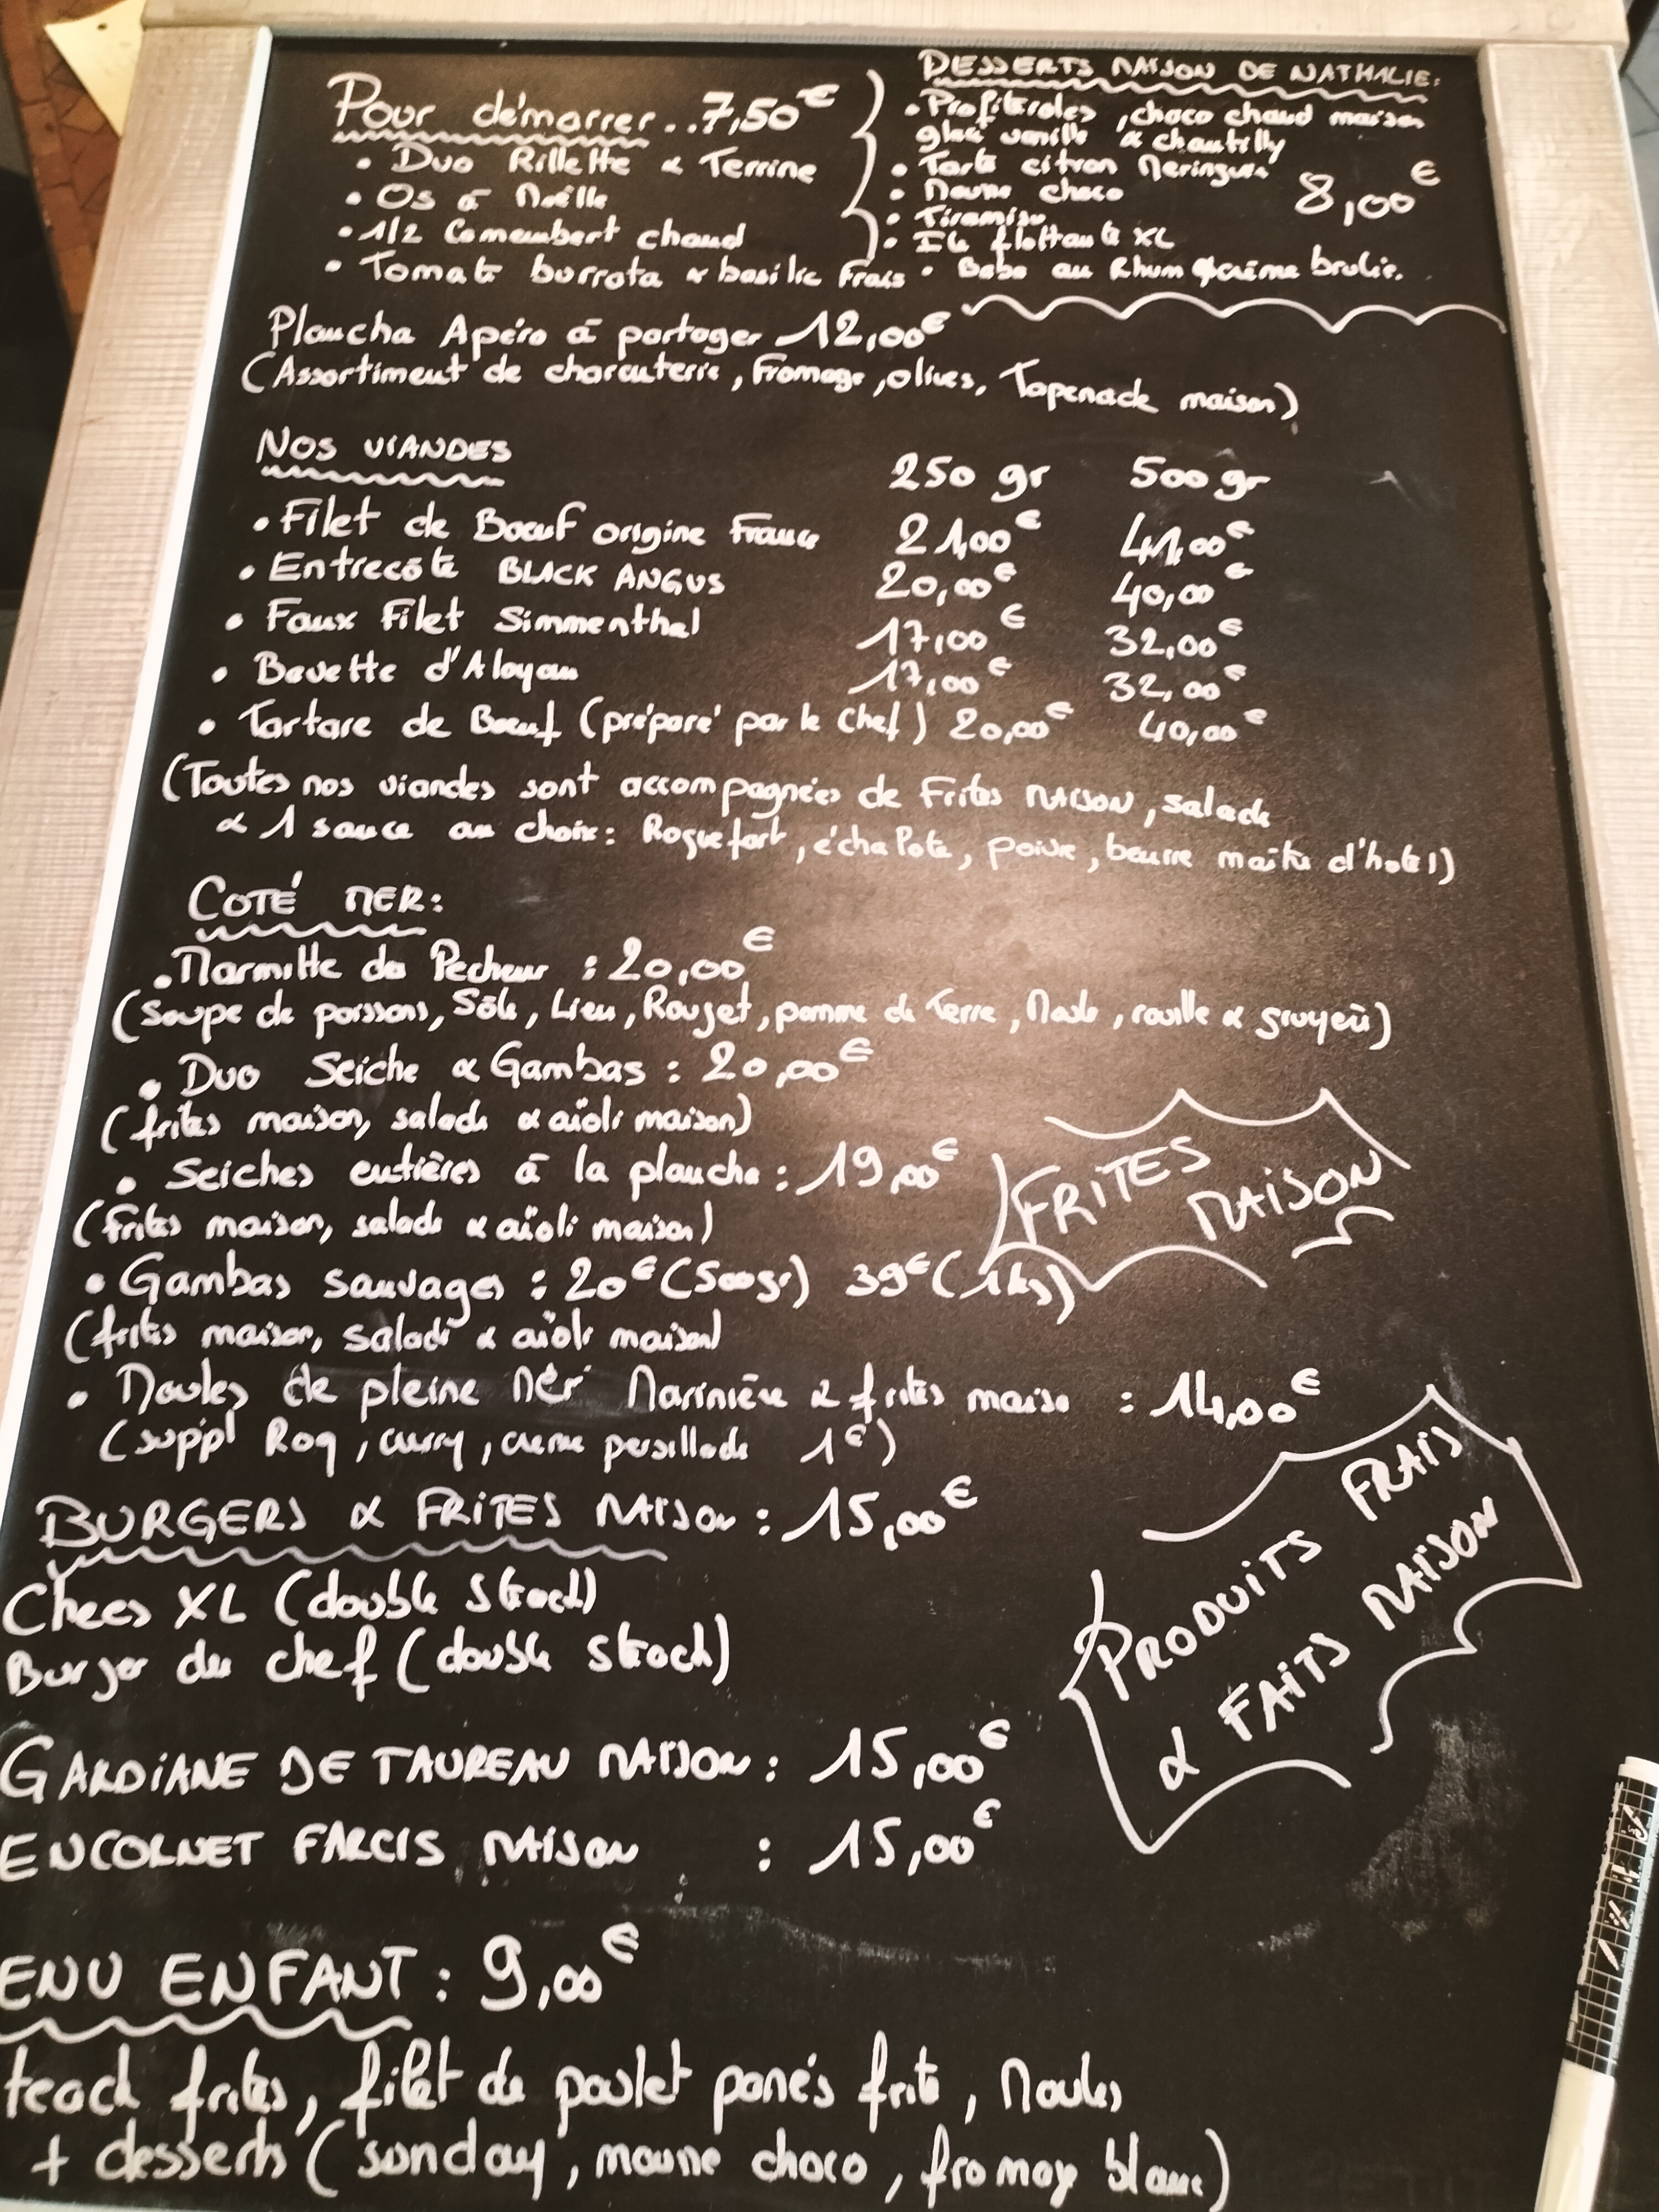 Pour démarrer..7,50€
• Duo Rillette & Terrine
• Os à Moëlle
• 1/2 Camembert chaud
• Tomate burrata & basilic frais
DESSERTS MAISON DE NATHALIE:
• Profiteroles, choco chaud maison
glace vanille & chantilly
• Tarte citron Meringuée
• Mousse choco
8,00€
• Tiramisu
• Ile flottante XL
• Baba au Rhum & crème brulée.
Plancha Apéro à partager 12,00€
(Assortiment de charcuterie, fromage, olives, Tapenade maison)
NOS VIANDES
250 gr 500 gr
• Filet de Boeuf origine France 21,00€ 41,00€
• Entrecôte BLACK ANGUS 20,00€ 40,00€
• Faux Filet Simmenthal 17,00€ 32,00€
• Bavette d'Aloyau 17,00€ 32,00€
• Tartare de Boeuf (préparé par le chef) 20,00€ 40,00€
(Toutes nos viandes sont accompagnées de Frites MAISON, salade
& 1 sauce au choix: Roquefort, échalote, poivre, beurre maitre d'hotel)
COTÉ MER:
• Marmitte du Pecheur : 20,00€
(Soupe de poissons, Sôle, Lieu, Rouget, pomme de Terre, Moule, rouille & gruyère)
• Duo Seiche & Gambas : 20,00€
(frites maison, salade & aïoli maison)
• Seiches entières à la plancha : 19,00€
(frites maison, salade & aïoli maison)
FRITES
MAISON
• Gambas sauvages : 20€ (500gr) 39€ (1kg)
(frites maison, salade & aïoli maison)
• Moules de pleine Mer Marinière & frites maiso : 14,00€
(suppl Roq, curry, creme persillade 1€)
BURGERS & FRITES MAISON : 15,00€
Chees XL (double steack)
Burger du chef (double steack)
PRODUITS FRAIS
& FAITS MAISON
GARDIANE DE TAUREAU MAISON : 15,00€
ENCORNET FARCIS MAISON : 15,00€
ENU ENFANT : 9,00€
teack frites, filet de poulet panés frite, Moules
+ desserts (sunday, mousse choco, fromage blanc)